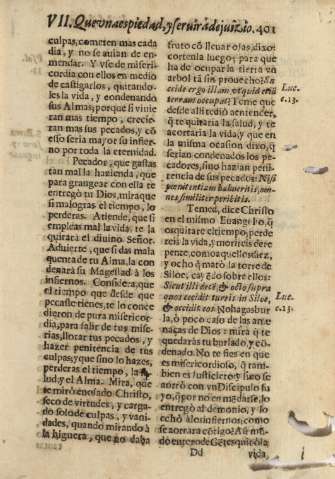 VII. Que vna es piedad, y seruirà de juizio. 401
culpas, cometen mas cada
dia, y no se auian de en-
mendar. Y vse de miseri-
cordia con ellos en medio
de castigarlos, quitando-
les la vida, y condenando
sus Almas; porque si viuie
ran mas tiempo, crecie-
ran mas sus pecados, y cō
esso seria mayor su infier-
no por toda la eternidad.
Pecador, que gastas
tan mal la hazienda, que
para grangear con ella te
entregò tu Dios, mira que
si malogras el tiempo, lo
perderas. Atiende, que si
empleas mal la vida, te la
quitarà el diuino Señor.
Aduierte, que si das mala
quenta de tu Alma, la con
denarà su Magestad à los
infiernos. Considera, que
el tiempo que desde que
pecaste tienes, te lo conce
dieron de pura misericor-
dia, para salir de tus mise-
rias, llorar tus pecados, y
hazer penitencia de tus
culpas, y que sino lo hazes,
perderas el tiempo, la sa-
lud, y el Alma. Mira, que
te mirò enojado Christo,
seco de virtudes, y carga-
do solo de culpas, y vani-
dades, quando mirando à
la higuera, que no daba
fruto cō lleuar ojas, dixo:
cortenla luego; para que
ha de ocupar la tierra vn
arbol tā sin prouecho?
ergo illam, vt quid etiā
terram occupat? Teme que
desde alli te diò a entender,
q̃ te quitaria la salud, y te
acortaria la vida; y que en
la misma ocasion dixo, q̃
serian condenados los pe-
cadores, sino hazian peni-
tencia de sus pecados: Nisi
pœnitentiam habueritis, om-
nes similiter peribitis.
Temed, dice Christo
en el mismo Euangelio, q̃
os quitare el tiempo, perde
reis la vida, y morireis de re
pente, como aquellos diez,
y ocho q̃ matò la torre de
Siloe, cayēdo sobre ellos:
Sicut illi decē, & octo supra
quos cecidit turris in Siloe,
& occidit eos. No hagas bur
la, ò poco caso de las ame
naças de Dios: mira q̃ te
quedaràs tu burlado, y cō-
denado. No te fies en que
es misericordioso, q̃ tam-
bien es justiciero; y si no se
ahorrò con vn Discipulo su
yo, q̃ por no enmēdarse, lo
entregò al demonio, y lo
echò a los infiernos; como
Luc.
c.13.
Luc.
c.13.
Dd
vida,